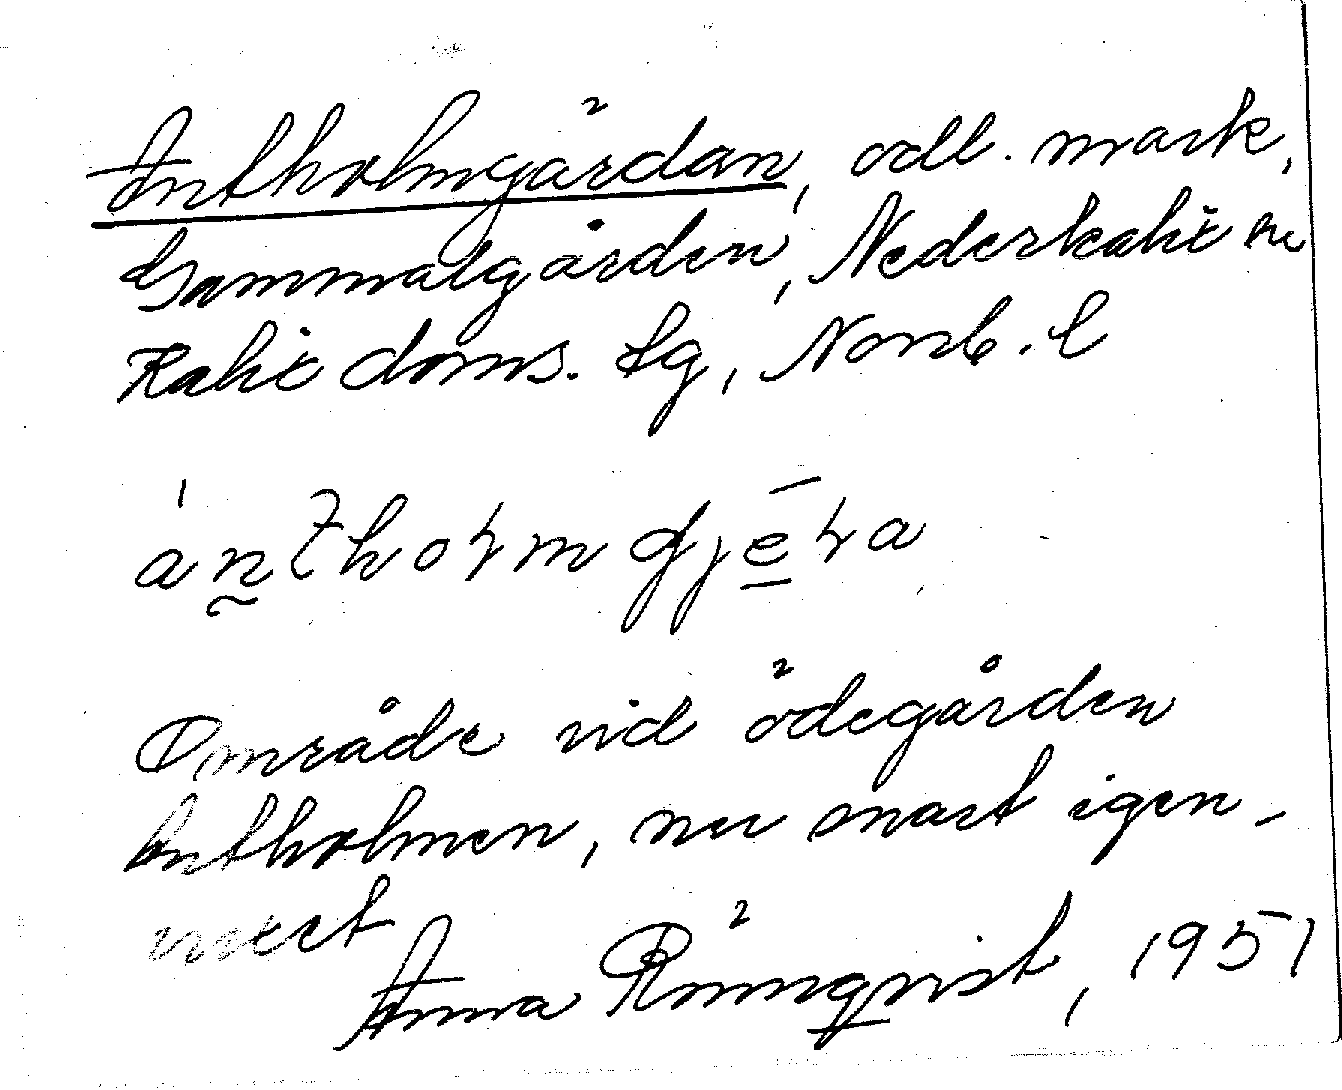 Antholmgärdan, odl. mark,
Gammalgården, Nederkalix sn
Kalix doms. tg, Norrb. l
Område vid ödegården
Antholmen, nu snart igen-
växt
Anna Rönnqvist, 1951